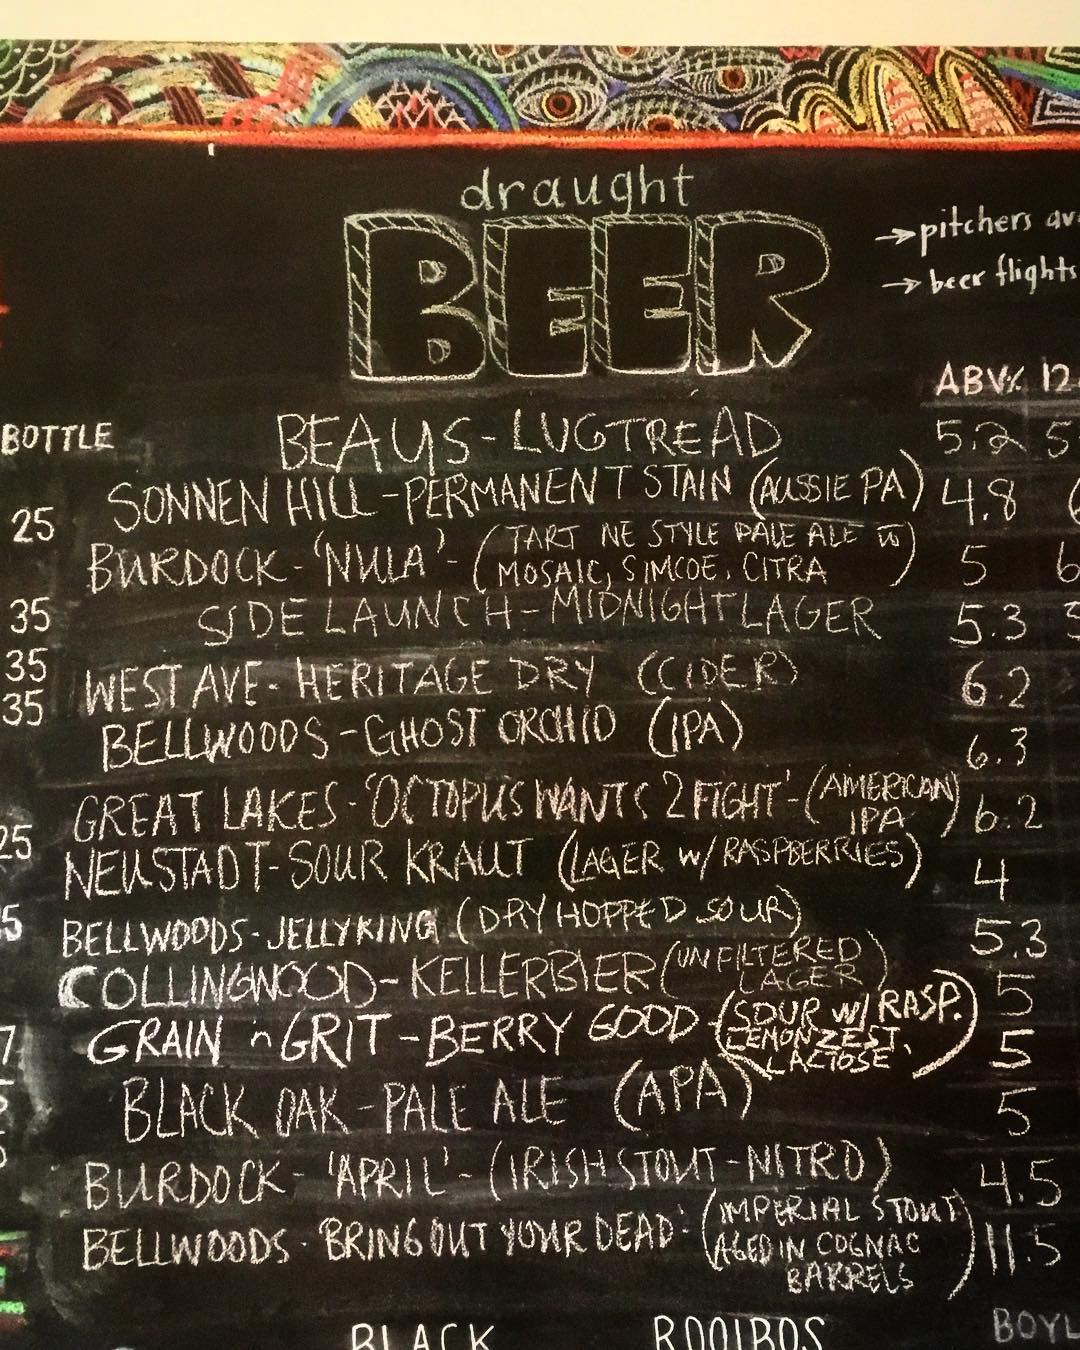 draught
BEER
→pitchers
→beer flights
ABV% 12
BOTTLE BEAUS-LUGTREAD 5.2 5
25 SONNEN HILL-PERMANENT STAIN (AUSSIE PA) 4.8
BURDOCK-'NULA'-(TART NE STYLE PALE ALE w
MOSAIC, SIMCOE, CITRA) 5 6
35 SIDE LAUNCH-MIDNIGHT LAGER 5.3
35 WEST AVE-HERITAGE DRY (CIDER) 6.2
35 BELLWOODS-GHOST ORCHID (IPA) 6.3
GREAT LAKES-'OCTOPUS WANTS 2 FIGHT'-(AMERICAN
IPA) 6.2
25 NEUSTADT-SOUR KRAUT (LAGER w/ RASPBERRIES) 4
BELLWOODS-JELLYKING (DRY HOPPED SOUR) 5.3
COLLINGWOOD-KELLERBIER (UNFILTERED
LAGER) 5
GRAIN 'n GRIT-BERRY GOOD-(SOUR w/ RASP.
LEMON ZEST,
LACTOSE) 5
BLACK OAK-PALE ALE (APA) 5
BURDOCK-'APRIL'-(IRISH STOUT-NITRO) 4.5
BELLWOODS-'BRING OUT YOUR DEAD'-(IMPERIAL STOUT
AGED IN COGNAC
BARRELS) 11.5
BLACK ROOIBOS BOYL